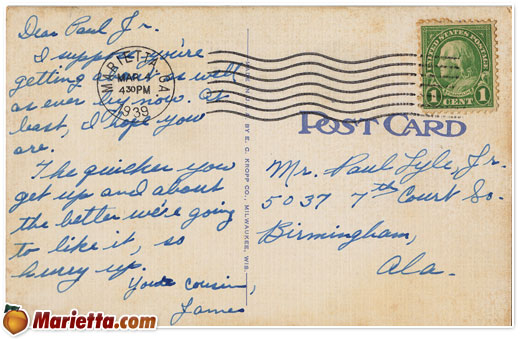 Dear Paul Jr.
I suppose you're
getting about as well
as ever by now. At
least, I hope you
are.
The quicker you
get up and about
the better we're going
to like it, so
hurry up.
Your cousin,
James
MARIETTA, GA.
MAR
430PM
1939
UNITED STATES POSTAGE
1 CENT 1
POST CARD
Mr. Paul Lyle, Jr.
5037 7th Court So.
Birmingham,
Ala.
BY E. C. KROPP CO., MILWAUKEE, WIS.
Marietta.com